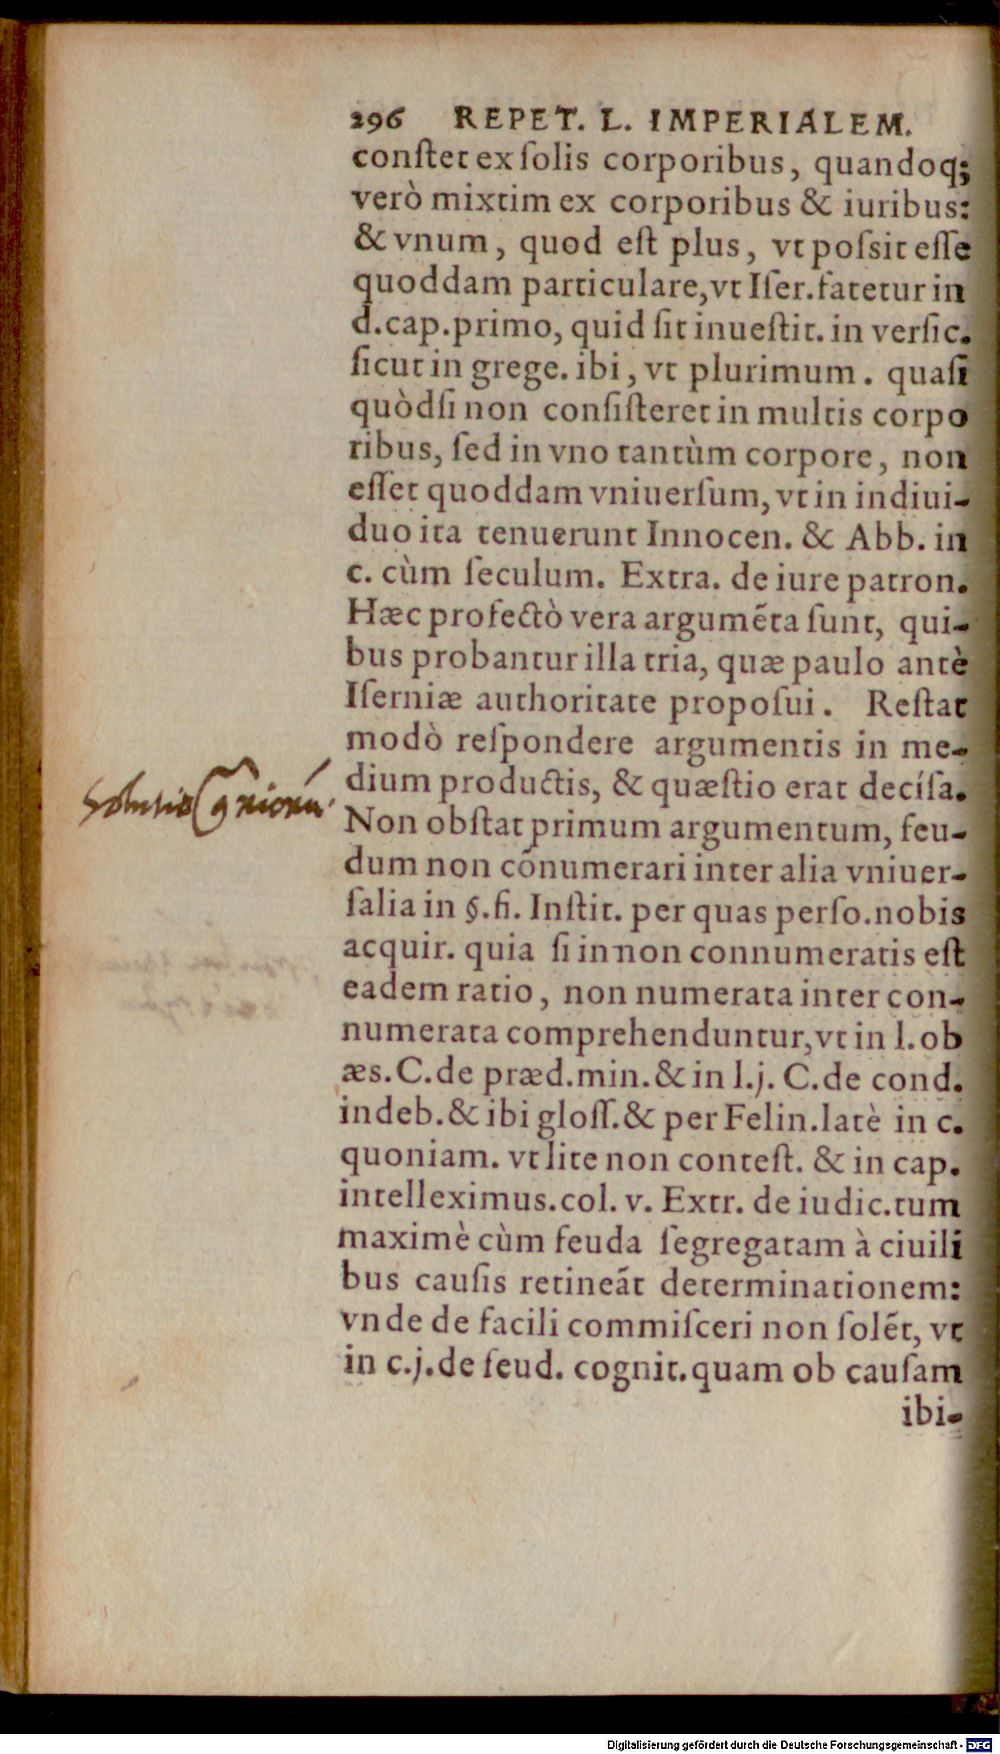 296 REPET. L. IMPERIALEM.
conſtet ex ſolis corporibus, quandoq;
verò mixtim ex corporibus & iuribus:
& vnum, quod eſt plus, vt poſsit eſſe
quoddam particulare, vt Iſer. fatetur in
d.cap.primo, quid ſit inueſtit. in verſic.
ſicut in grege. ibi, vt plurimum. quaſi
quòdſi non conſiſteret in multis corpo
ribus, ſed in vno tantùm corpore, non
eſſet quoddam vniuerſum, vt in indiui-
duo ita tenuerunt Innocen. & Abb. in
c. cùm ſeculum. Extra. de iure patron.
Hæc profectò vera argumẽta ſunt, qui-
bus probantur illa tria, quæ paulo antè
Iſerniæ authoritate propoſui. Reſtat
modò reſpondere argumentis in me-
dium productis, & quæſtio erat deciſa.
Solutio
Non obſtat primum argumentum, feu-
dum non cõnumerari inter alia vniuer-
ſalia in §.fi. Inſtit. per quas perſo.nobis
acquir. quia ſi in non connumeratis eſt
eadem ratio, non numerata inter con-
numerata comprehenduntur, vt in l.ob
æs.C.de præd.min.& in l.j. C.de cond.
indeb.& ibi gloſſ.& per Felin.latè in c.
quoniam. vt lite non conteſt. & in cap.
intelleximus.col. v. Extr. de iudic.tum
maximè cùm feuda ſegregatam à ciuili
bus cauſis retineãt determinationem:
vnde de facili commiſceri non ſolẽt, vt
in c.j.de feud. cognit.quam ob cauſam
ibi-
Digitalisierung gefördert durch die Deutsche Forschungsgemeinschaft - DFG